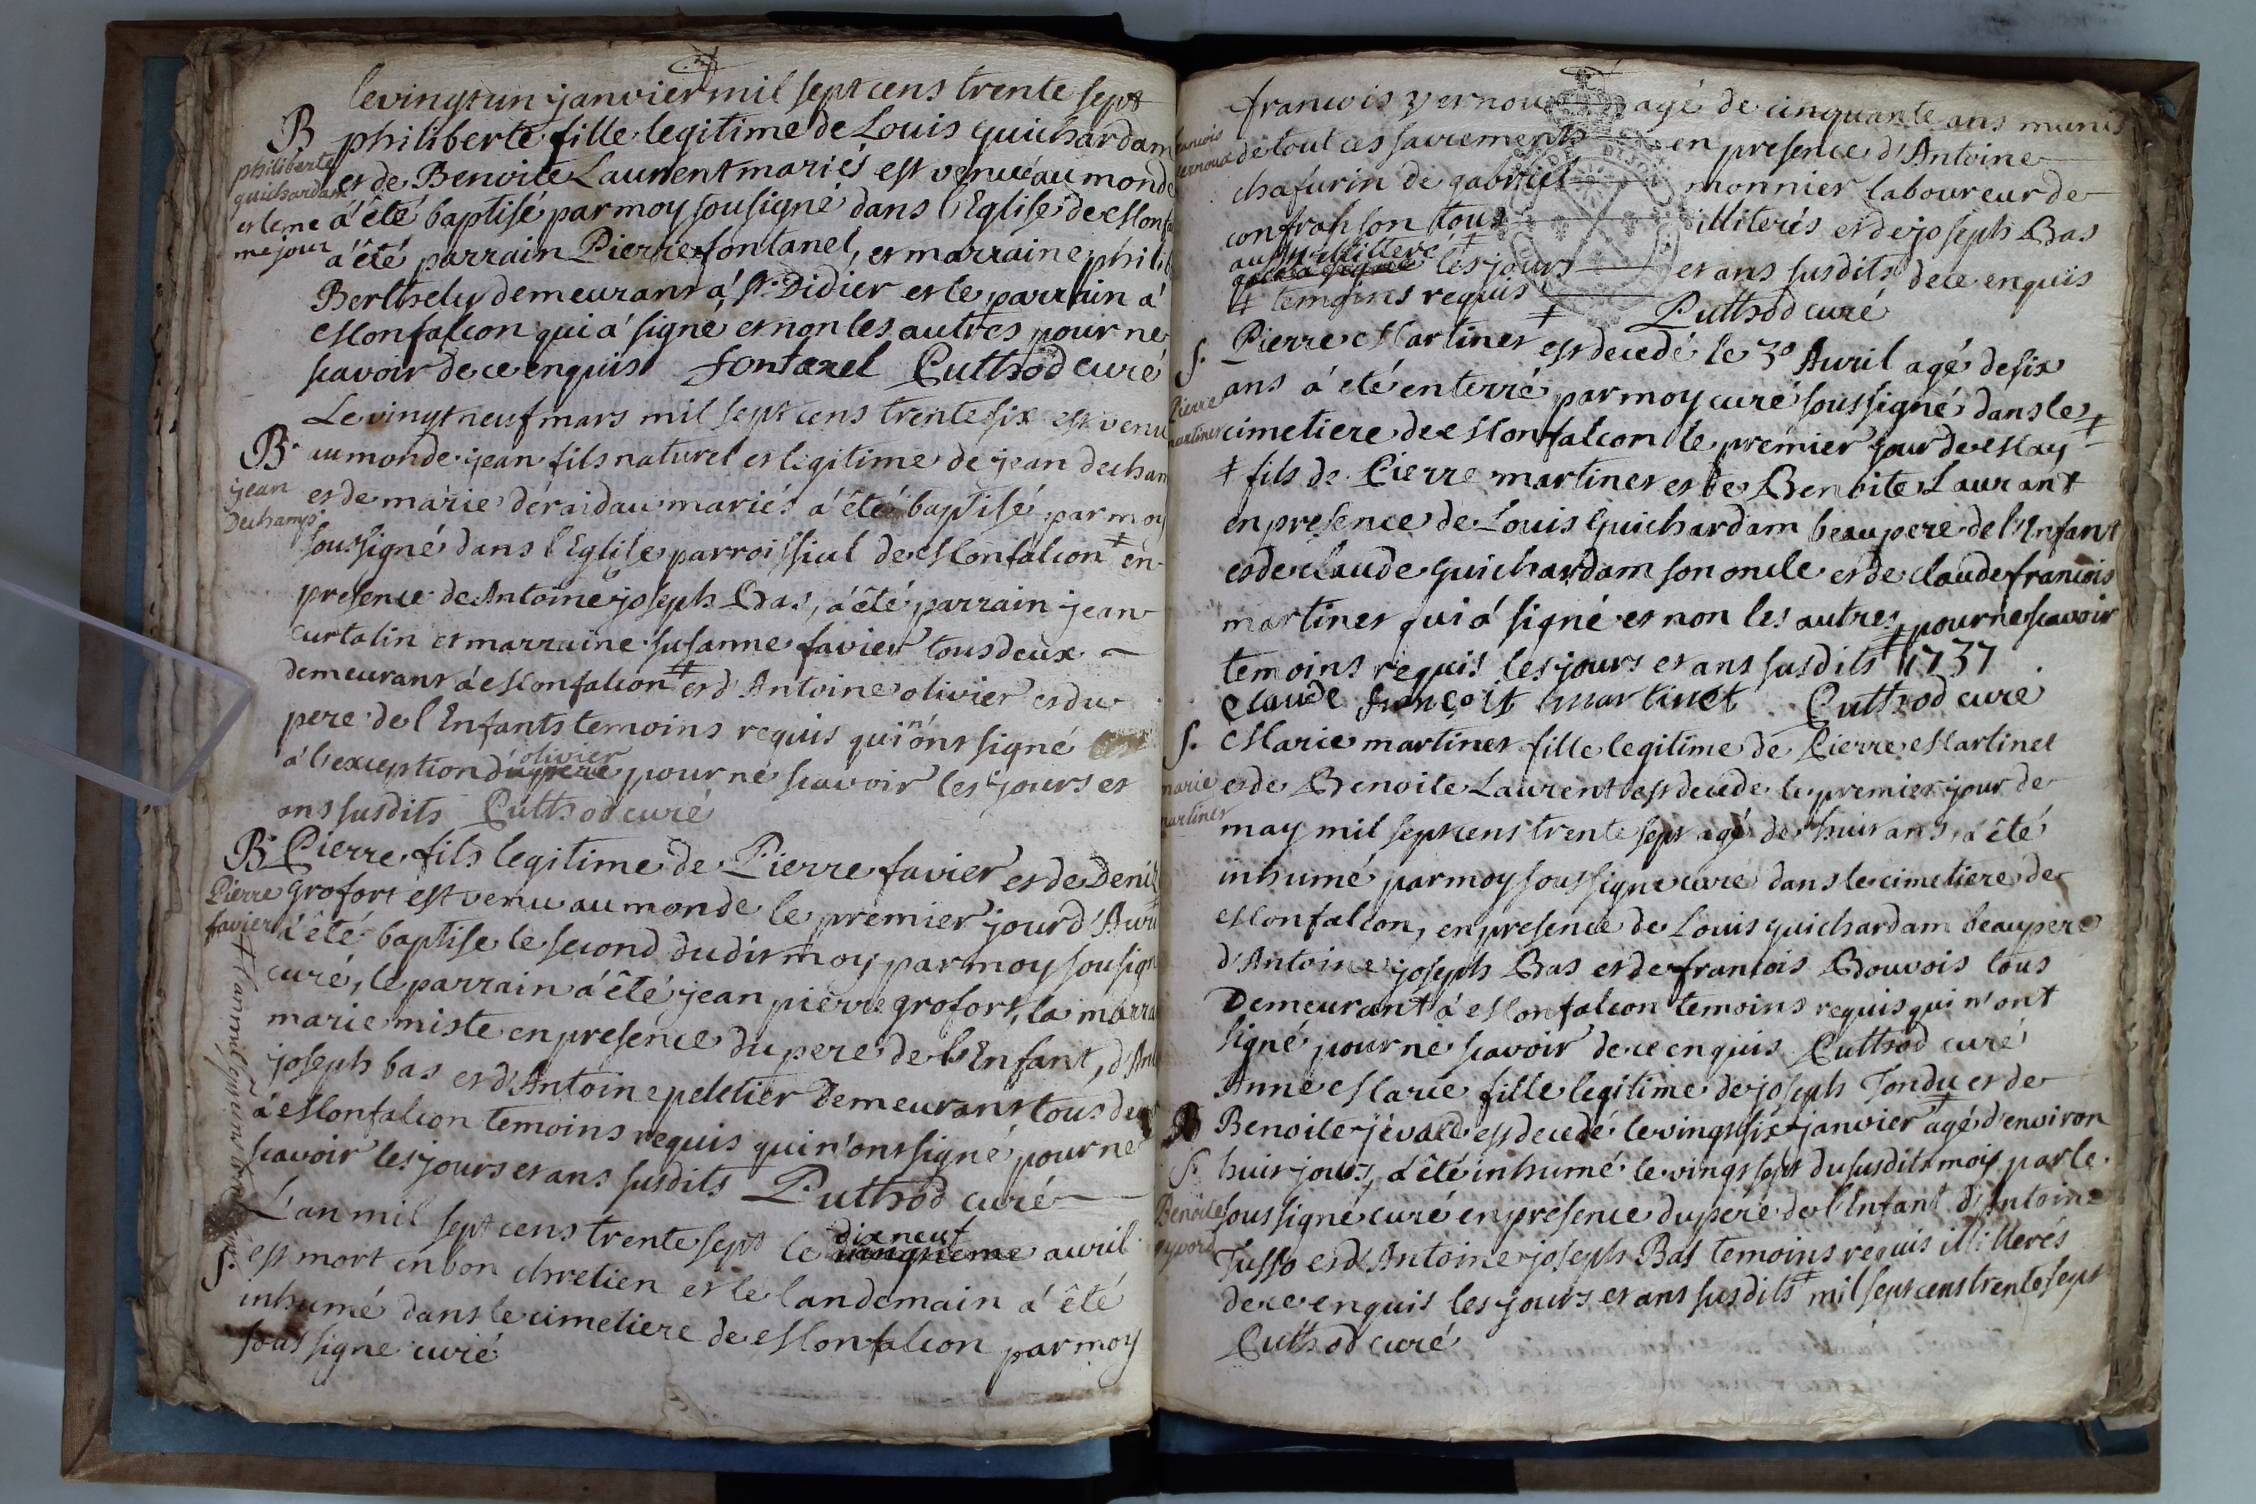 le vingt un janvier mil sept cens trente sept
B philiberte fille legitime de Louis guichardam
philiberte guichardam
et de Benoite Laurent mariés est venüe au monde
et le me me jour a été baptisé par moy sousigné dans l'Eglise de Monfa
a été parrain Pierre fontanel, et marraine phili
Berthelu demeurant á St Didier et le parrain á
Monfalcon qui á signé et non les autres pour ne
scavoir de ce enquis fontanel Puthod curé
Le vingt neuf mars mil sept cens trente six est venu
B. au monde jean fils naturel et legitime de jean decham
jean Dechamps
et de marie déraidau mariés á été baptisé par moy
soussigné dans l'Eglise parroissial de Monfalcon ‡ en
presence de Antoine joseph Bas, á été parrain jean
curtalin et marraine susanne favier tous deux
demeurant á Monfalcon ‡ et d'Antoine olivier et du
pere de l'Enfants temoins requis qui n'ont signé
á l'exception olivier pour ne scavoir les jours et
ans susdits Puthod curé
B. Pierre fils legitime de Pierre favier et de Deni
Pierre favier
grofort est venu au monde le premier jour d'Avri
á été baptise le second dudit moy par moy sousign
curé, le parrain á été jean pierre grofort, la marra
marie miste en presence du pere de l'Enfant, d'An
joseph bas et d'Antoine peletier Demeurant tous de
á Monfalcon temoins requis qui n'ont signé pour ne
scavoir les jours et ans susdits Puthod curé
L'an mil sept cens trente sept le dixneuf avril
S. est mort en bon chretien et le landemain á été
inhumé dans le cimetiere de Monfalcon par moy
sous signe curé
francois vernou agé de cinquante ans munis
francois vernoux
de tout ces sacrements en presence d'Antoine
chafurin de gabriel monnier laboureur de
confranson tous illiterés et de joseph Bas
aussy illiteré ‡ les jours et ans susdits de ce enquis
‡ temoins requis Puthod curé
S. Pierre Martinet est decedé le 30 Avril agé de six
Pierre martinet
ans á eté enterré par moy curé soussigné dans le
cimetiere de Monfalcon le premier jour de May ‡
‡ fils de Pierre martinet et de Benoite Laurant
en presence de Louis guichardam beaupere de l'Enfant
et de claude guichardam son oncle et de claude francois
martinet qui á signé et non les autres ‡ pour ne scavoir
temoins requis les jours et ans susdits ‡ 1737
claude françois martinet Puthod curé
S. Marie martinet fille legitime de Pierre Martinet
marie martinet
et de Benoite Laurent est decede le premier jour de
may mil sept cens trente sept agé de huit ans, á été
inhumé par moy soussigne curé dans le cimetiere de
Monfalcon, en presence de Louis guichardam beaupere
d'Antoine joseph Bas et de francois Bouvois tous
Demeurant á Monfalcon temoins requis qui n'ont
signé pour ne scavoir de ce enquis Puthod curé
Anne Marie fille legitime de joseph Tondu et de
Benoite est decedé le vingt six janvier ‡ agé d'environ
S. huit jours, á été inhumé le vingt sept du susdits mois par le
Benoite
soussigné curé en presence du pere de l'Enfant d'Antoine
Tusso et d'Antoine joseph Bas temoins requis illitterés
de ce enquis les jours et ans susdits ‡ mil sept cens trente sept
Puthod curé